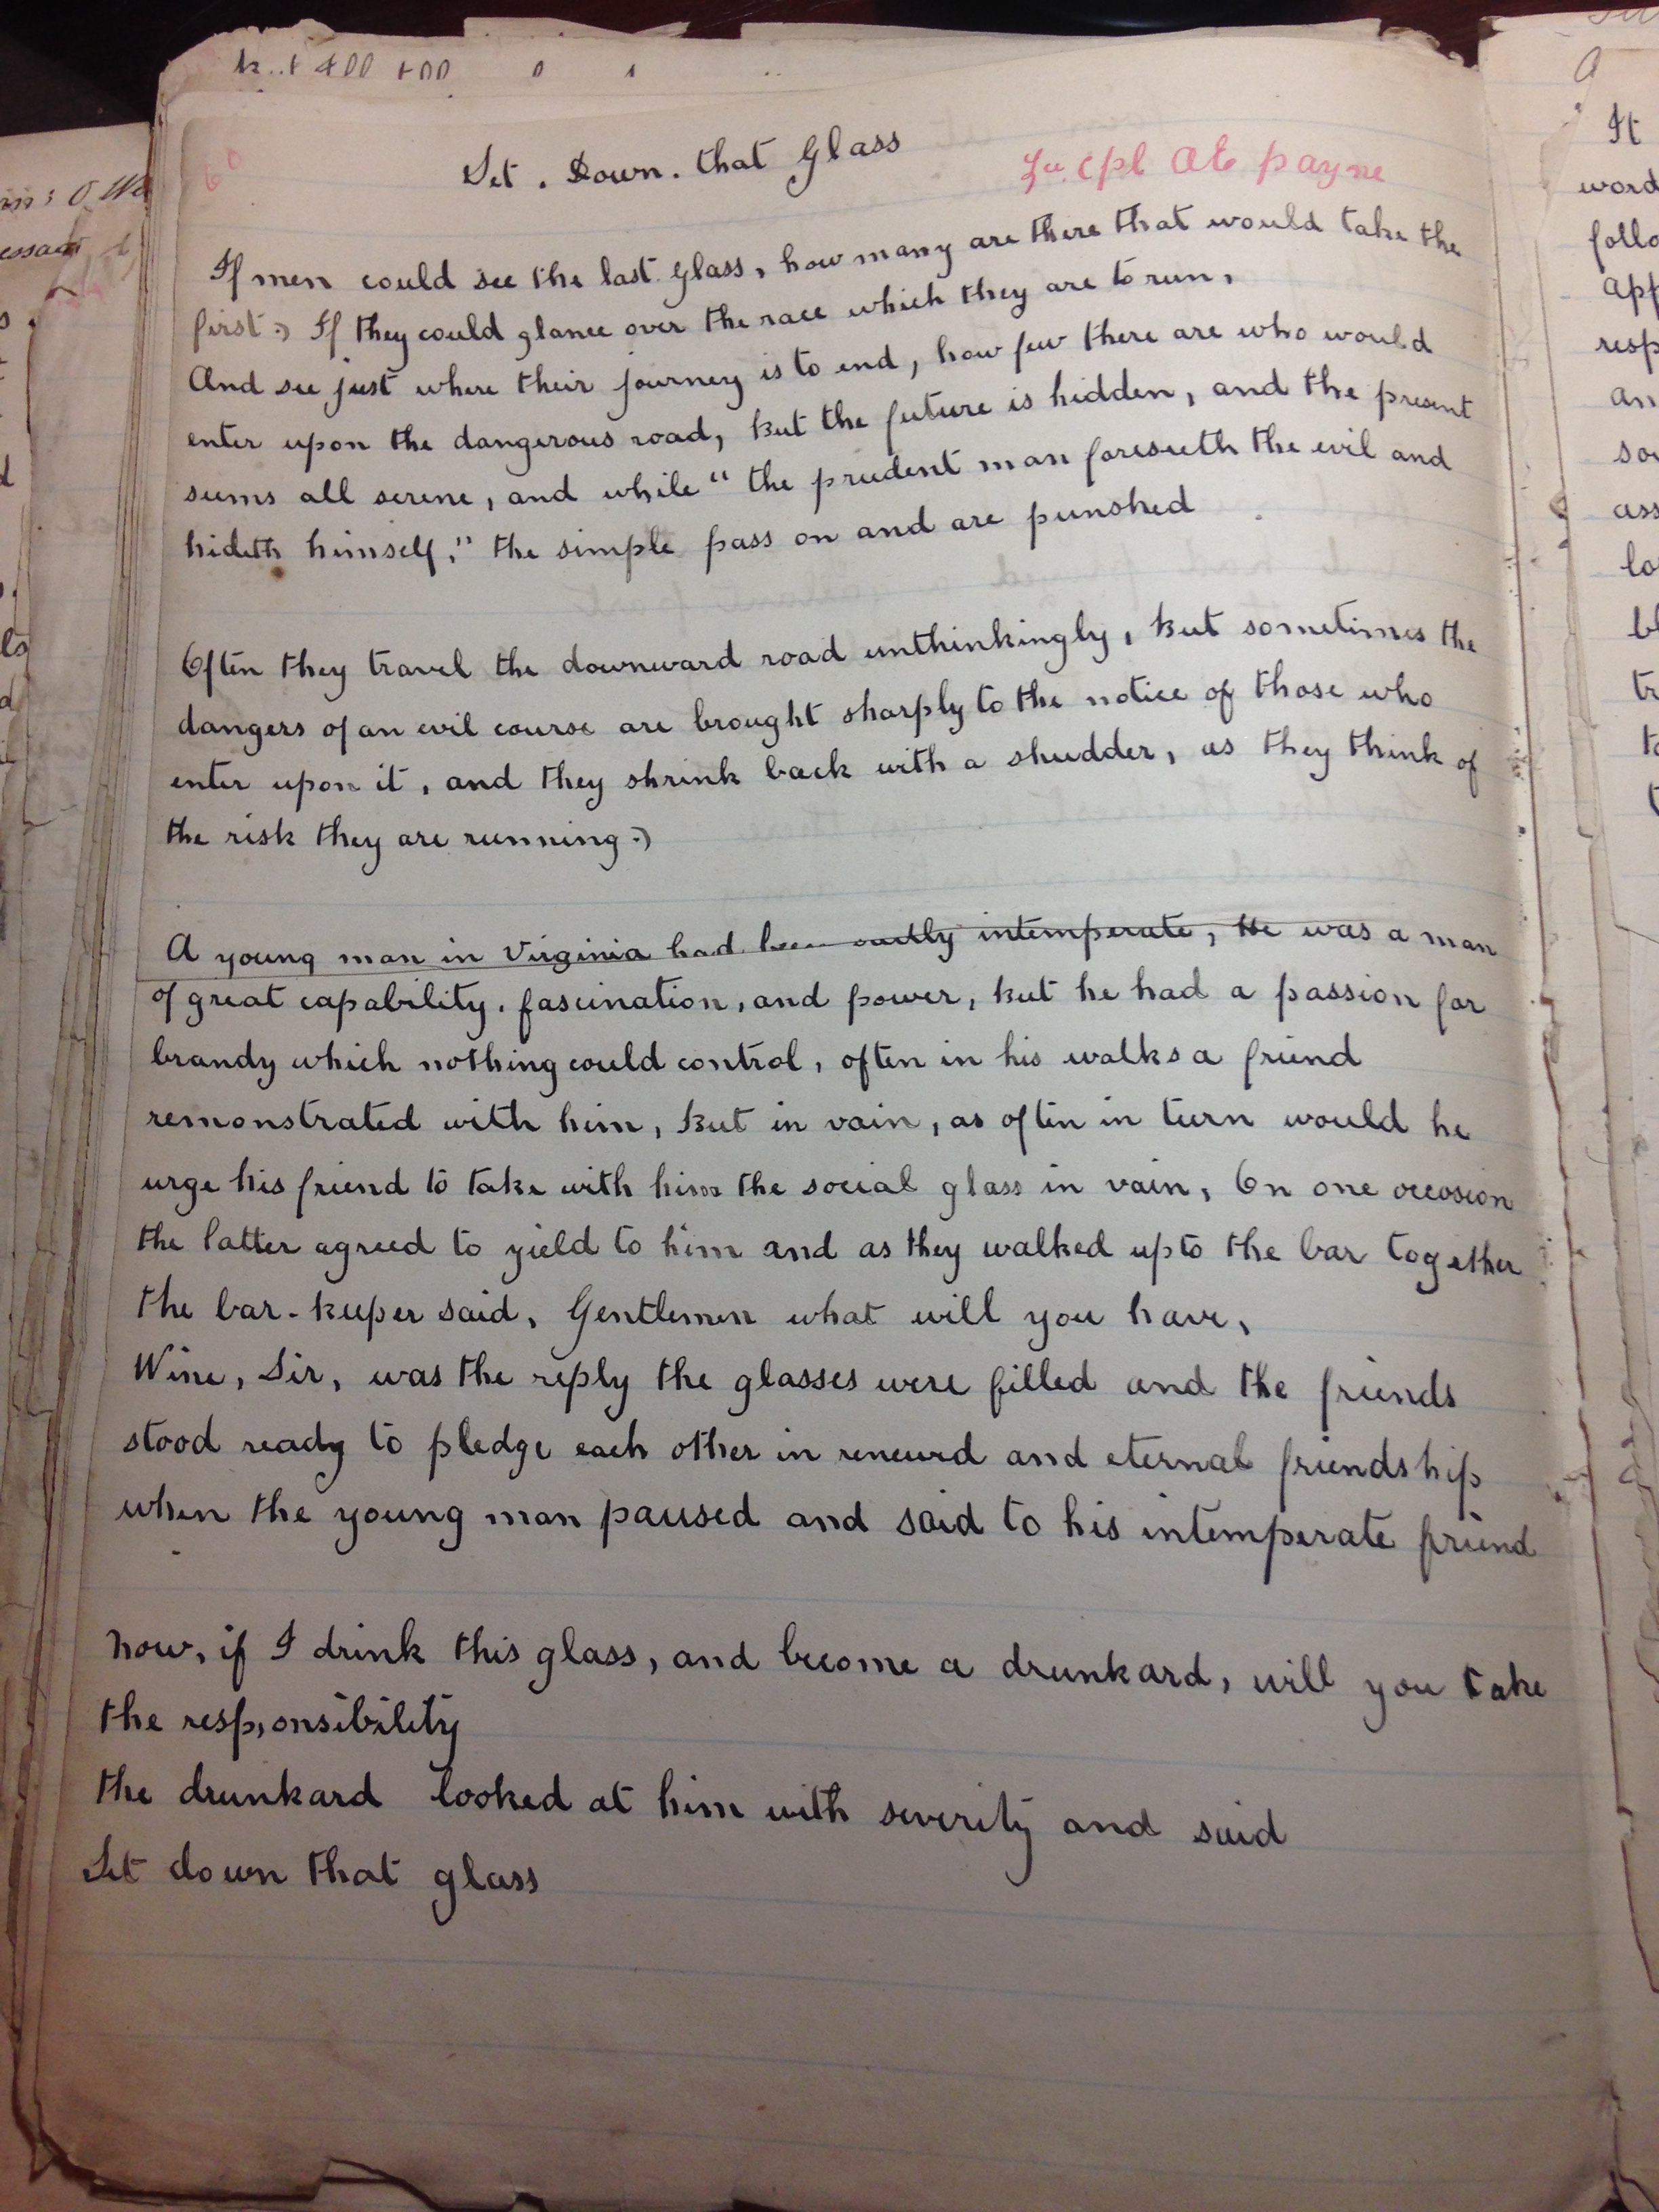 60
Set. Down. that Glass
Lce. Cpl A E Payne
If men could see the last Glass, how many are there that would take the
first? If they could glance over the race which they are to run,
And see just where their journey is to end, how few there are who would
enter upon the dangerous road, But the future is hidden, and the present
seems all serene, and while "the prudent man foreseeth the evil and
hideth himself," the simple pass on and are punshed
Often they travel the downward road unthinkingly, But sometimes the
dangers of an evil course are brought sharply to the notice of those who
enter upon it, and they shrink back with a shudder, as they think of
the risk they are running.
A young man in Virginia had been sadly intemperate, He was a man
of great capability, fascination, and power, But he had a passion for
brandy which nothing could control, often in his walks a friend
remonstrated with him, But in vain, as often in turn would he
urge his friend to take with him the social glass in vain, On one occosion
the latter agreed to yield to him and as they walked up to the bar together
the bar-keeper said, Gentlemen what will you have,
Wine, Sir, was the reply the glasses were filled and the friends
stood ready to pledge each other in renewed and eternal friendship
when the young man paused and said to his intemperate friend
Now, if I drink this glass, and become a drunkard, will you take
the responsibility
the drunkard looked at him with severity and said
Set down that glass
It
word
follo
app
resp
an
ass
lo
bl
tr